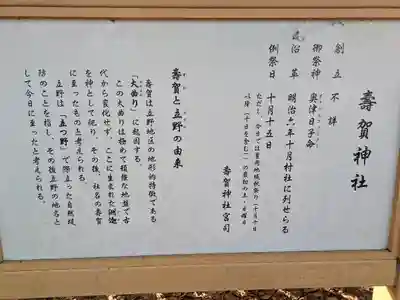 壽賀神社
創立 不詳
御祭神 奥津日子命
沿革 明治六年十月村社に列せらる
例祭日 十月十五日
ただし、今日では
以降(十日を含む)の最初の土・日曜日
壽賀神社宮司
壽賀と立野の由来
壽賀は立野地区の地形的特徴である
「大曲り」に起因する。
この大曲りは極めて頑強な地盤で古
代から変化せず、ここに生まれた
を神として祀り、その後、社名の壽賀
に至ったものと考えられる。
立野は、「立つ野」で際立った自然堤
防のことを指し、その後立野の地名と
して今日に至ったと考えられる。